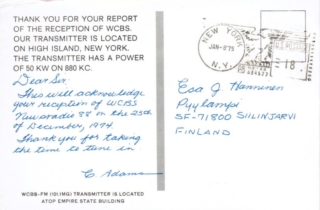 THANK YOU FOR YOUR REPORT
OF THE RECEPTION OF WCBS.
OUR TRANSMITTER IS LOCATED
ON HIGH ISLAND, NEW YORK.
THE TRANSMITTER HAS A POWER
OF 50 KW ON 880 KC.
Dear Sir,
This will acknowledge
your reception of WCBS
Newsradio 88 on the 25th
of December, 1974
Thank you for taking
the time to tune in
C. Adams
WCBS-FM (101.1MG) TRANSMITTER IS LOCATED
ATOP EMPIRE STATE BUILDING
NEW YORK
JAN-8'75
N.Y.
18
Esa J Hanninen
Pyylampi
SF-71800 SIILINJARVI
FINLAND